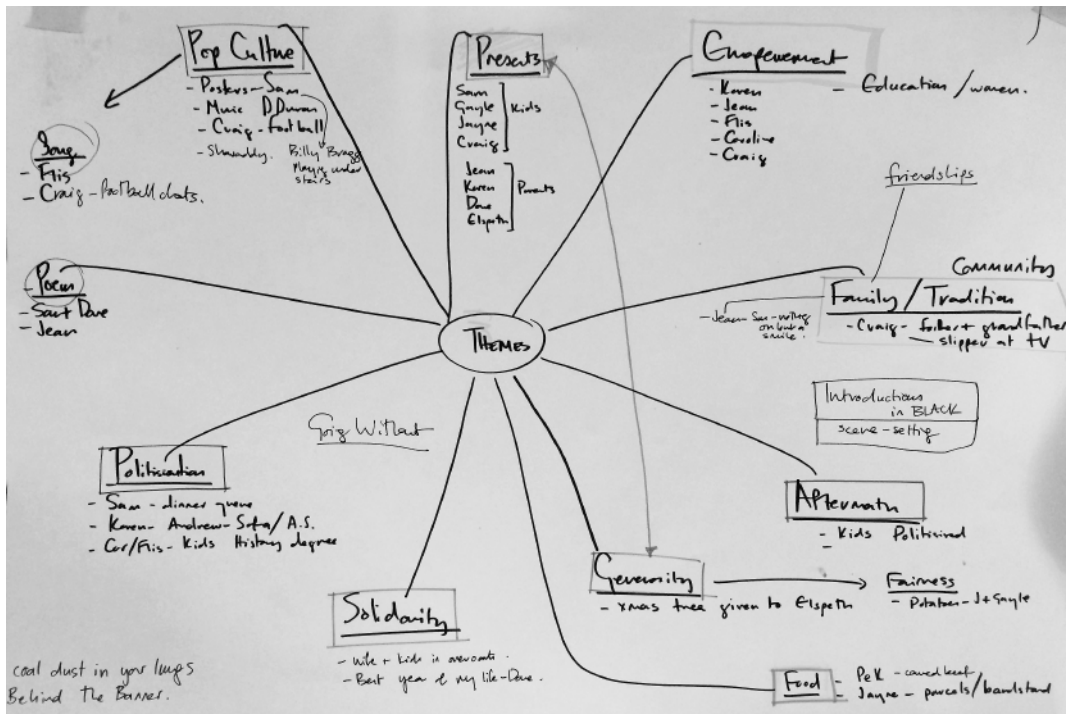 Pop Culture
- Posters - Sam
- Music D.Duran
- Craig - football
- Shambly. Billy Bragg
Playing under
stairs
Song
- Flis
- Craig - football chats.
Poem
- Sam + Dave
- Jean
Presents
Sam
Gayle
Jayne
Craig
Kids
Jean
Karen
Dave
Elspeth
Parents
Empowerment
- Karen
- Jean
- Flis
- Caroline
- Craig
- Education / women.
friendships
Community
Family / Tradition
- Craig - father + grandfather
- slipper at TV
- Jean
smile.
THEMES
Introductions
in BLACK
scene-setting
Going Without
Politicisation
- Sam - dinner queue
- Karen - Andrew - Sofa / A.S.
- Car/Flis - Kids History degree
Aftermath
- Kids Politisised
-
Generosity
- xmas tree given to Elspeth
Fairness
- Potatoes - J + Gayle
Solidarity
- wife + kids in overcoats.
- Best year of my life - Dave.
Food
- Pek - canned beef
- Jayne - parcels / bandstand
coal dust in your lungs
Behind The Banner.